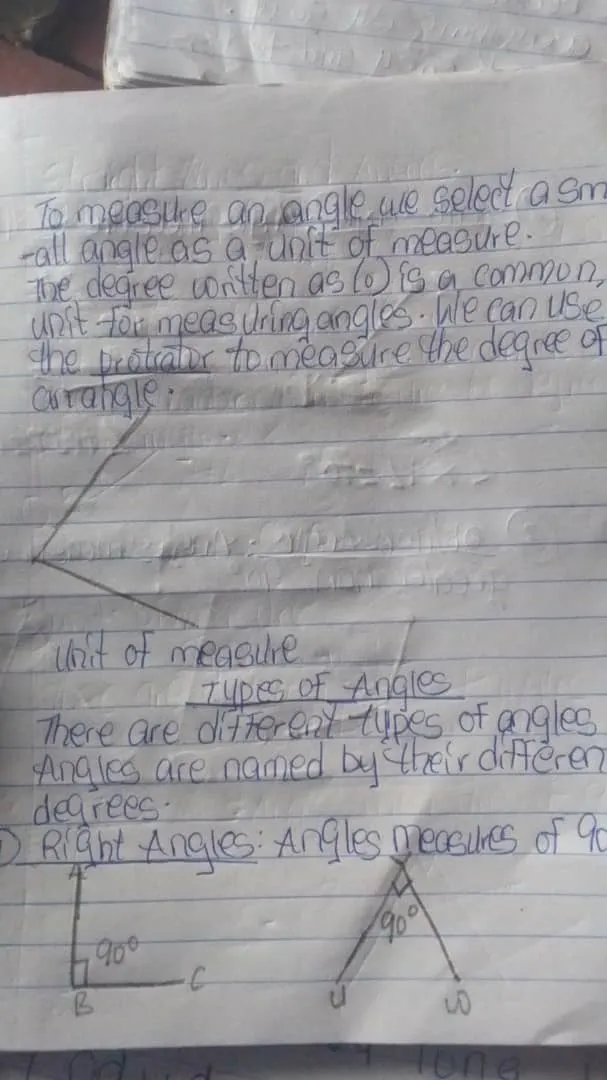 To measure an angle we select a sm
-all angle as a unit of measure.
The degree written as (o) is a common,
unit for measuring angles. We can use
the protrator to measure the degree of
an angle.
Unit of measure
Types of Angles
There are different types of angles
Angles are named by their differen
degrees.
) Right Angles: Angles measures of 90
A
90°
B C
90°
U W